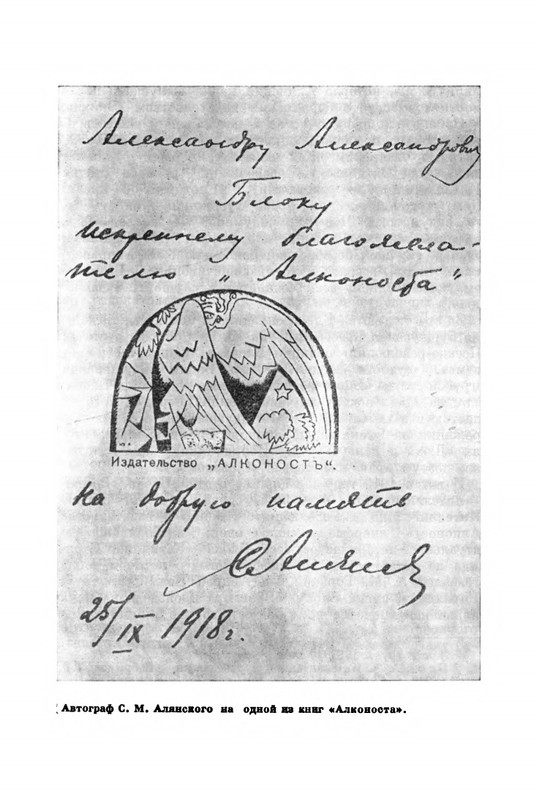 Александру Александровичу
Блоку
искреннему благожела-
телю „Алконоста"
Издательство „АЛКОНОСТЪ".
на добрую память
С Алянский
25/IX 1918 г.
Автограф С. М. Алянского на одной из книг «Алконоста».